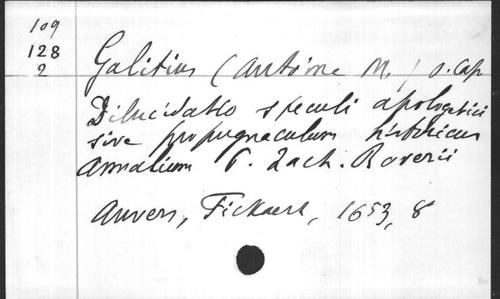 109
128
2
Galitius (Antoine M.) o. Cap
Dilucidatio speculi apologetici
sive propugnaculum historicum
Annalium P. Zach. Boverii
Anvers, Fickaert, 1653, 8